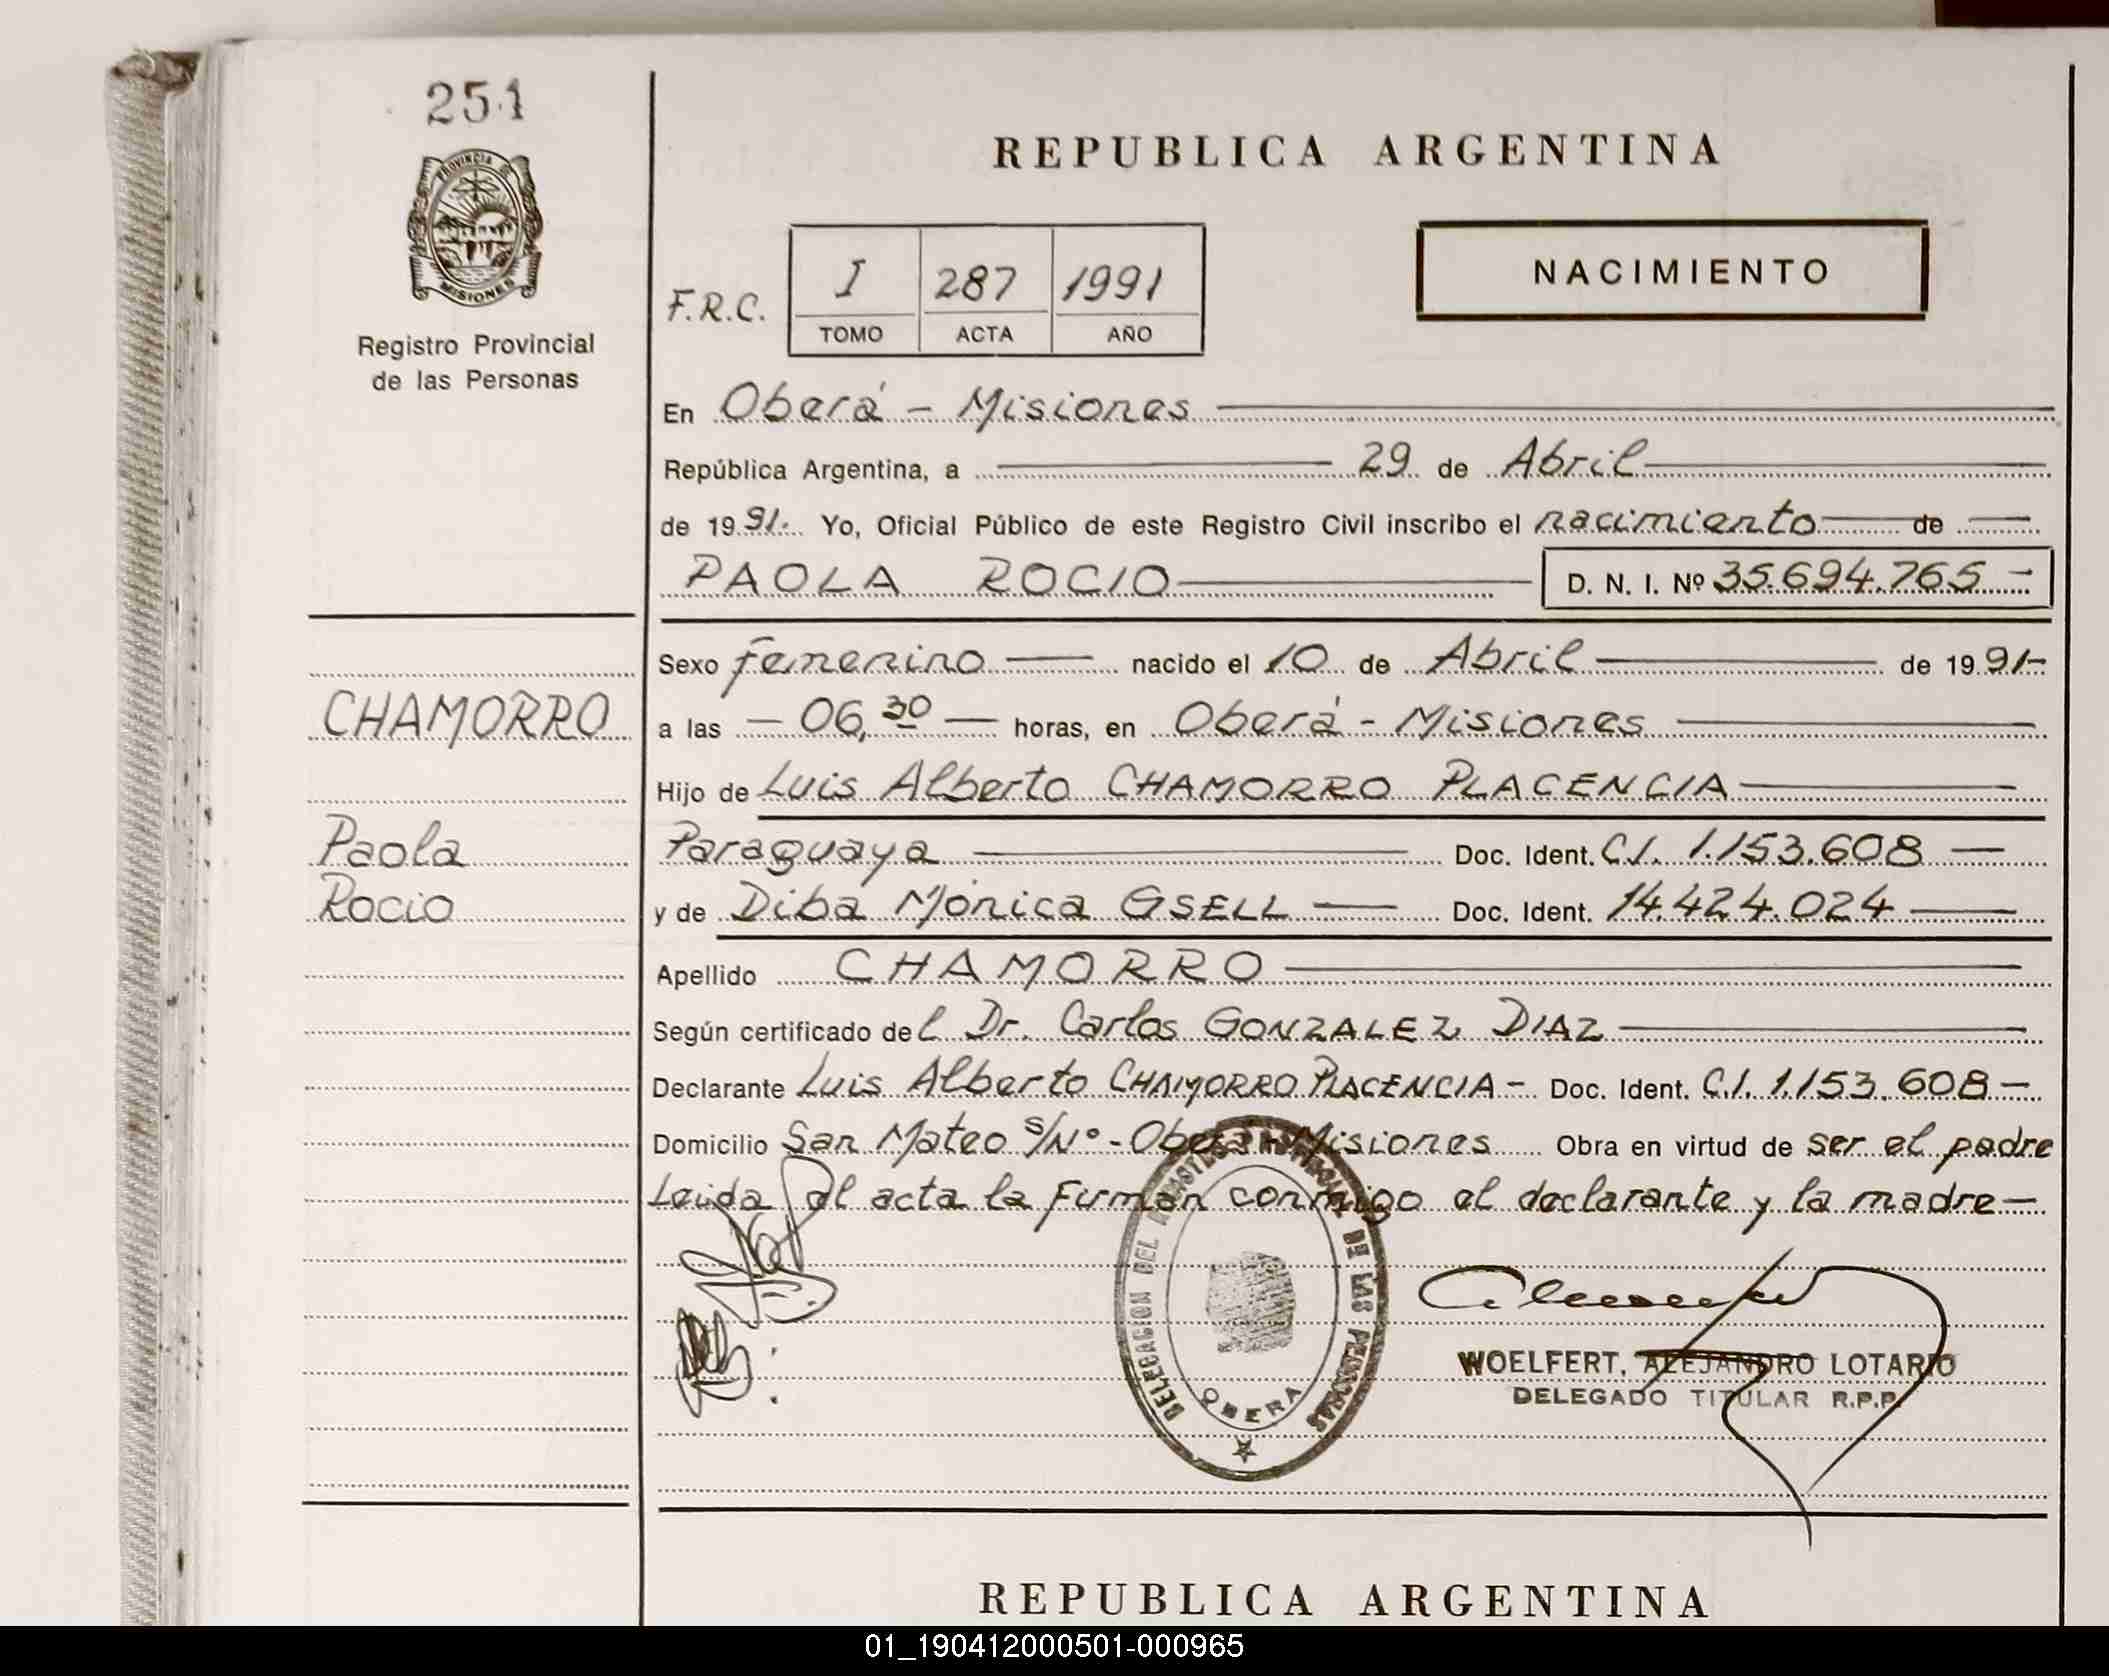 251
PROVINCIA DE
MISIONES
Registro Provincial
de las Personas
REPUBLICA ARGENTINA
NACIMIENTO
F.R.C. I 287 1991
TOMO ACTA AÑO
En Oberá - Misiones
República Argentina, a 29 de Abril
de 1991. Yo, Oficial Público de este Registro Civil inscribo el nacimiento de
PAOLA ROCIO D. N. I. Nº 35.694.765 -
Sexo femenino nacido el 10 de Abril de 1991-
CHAMORRO
a las - 06,30 - horas, en Oberá - Misiones
Hijo de Luis Alberto CHAMORRO PLACENCIA
Paola
Paraguaya Doc. Ident. C.I. 1.153.608 -
Rocio
y de Diba Mónica GSELL Doc. Ident. 14.424.024
Apellido CHAMORRO
Según certificado del Dr. Carlos GONZALEZ DIAZ
Declarante Luis Alberto CHAMORRO PLACENCIA - Doc. Ident. C.I. 1.153.608 -
Domicilio San Mateo s/Nº - Oberá - Misiones Obra en virtud de ser el padre
Leida el acta la firman conmigo el declarante y la madre -
DELEGACION DEL REGISTRO PROVINCIAL DE LAS PERSONAS
OBERA
WOELFERT, ALEJANDRO LOTARIO
DELEGADO TITULAR R.P.P.
REPUBLICA ARGENTINA
01_190412000501-000965